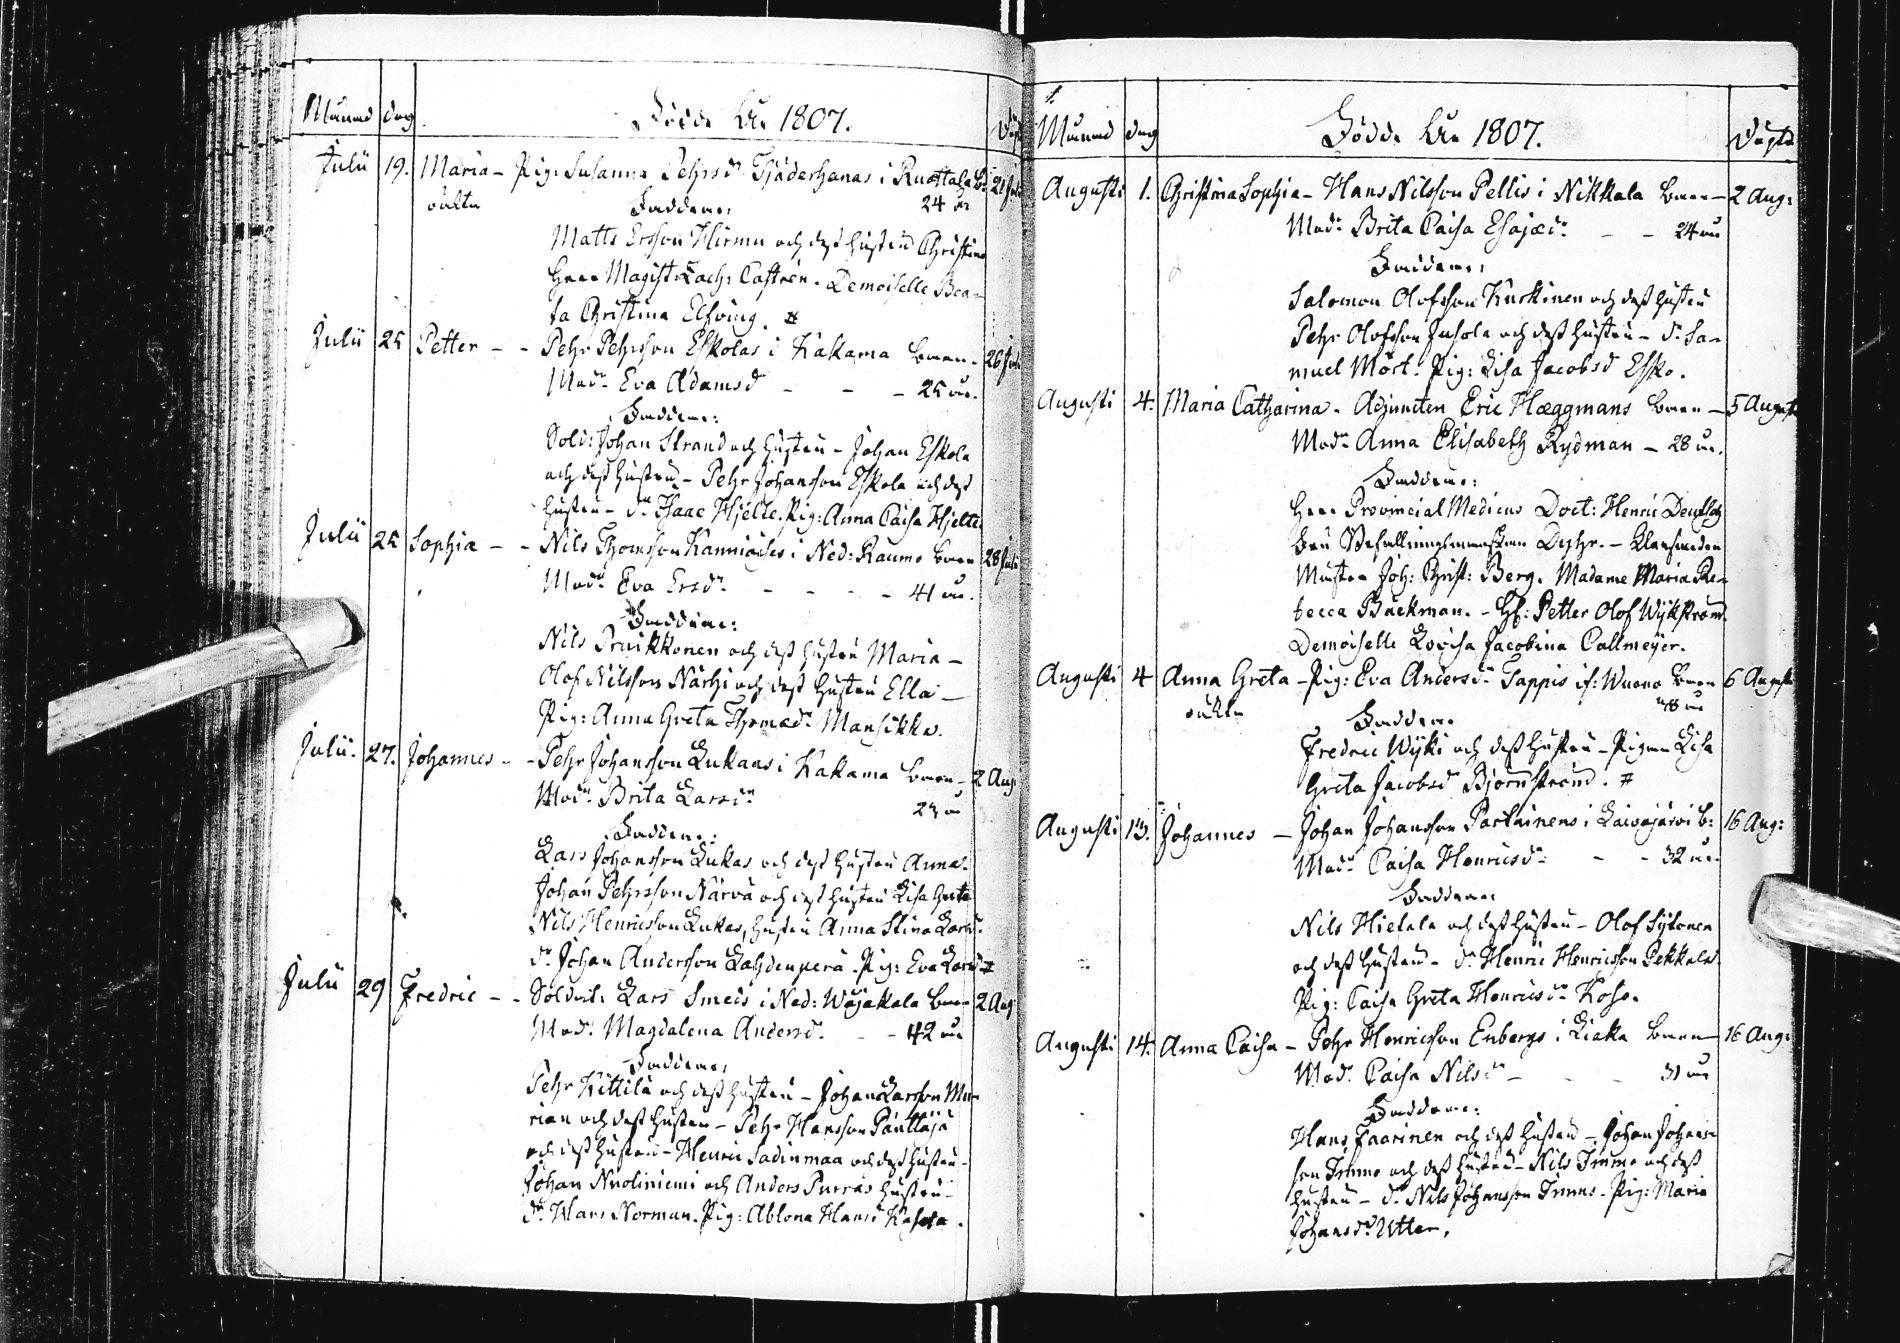 Månad dag Födde År 1807. Döpt
Julii 19. Maria - Pig: Susanna Pehrsdr Tjäderhanas i Ruottala B: 21 Juli
oäkta 24 år
Faddrar:
Matts Ersson Hirmu och dess hustru Christina
Herr Magist: Zach: Castrén. Demoiselle Bea-
ta Christina Elfving. #
Julii 25 Petter - - Pehr Pehrsson Eskolas i Kakama barn - 26 Juli
Modr Eva Adamsdr - - - 25 år.
Faddrar:
Sold: Johan Strand och hustru - Johan Eskola
och dess hustru - Pehr Johansson Eskola och dess
hustru - dr. Isaac Hjelte. Pig: Anna Caisa Hjelte.
Julii 25 Sophia - - Nils Thomsson Kanniaises i Ned: Raumo barn 28 Juli
Modr Eva Ersdr - - - - 41 år.
Faddrar:
Nils Pruikkonen och dess hustru Maria -
Olof Nilsson Närhi och dess hustru Ella -
Pig: Anna Greta Thomædr Mansikka.
Julii. 27. Johannes - - Pehr Johansson Lukaas i Kakama barn - 2 Aug
Modr Brita Larsdr år
Faddrar:
Lars Johansson Lukas och dess hustru Anna.
Johan Pehrsson Närvä och dess hustru Lisa Greta
Nils Henricsson Lukas, hustru Anna Stina Larsd.
dr. Johan Andersson Lahdenperä. Pig: Eva Larsd #
Julii 29 Fredric - - Soldat: Lars Smeds i Ned: Wojakala barn 2 Aug
Mod: Magdalena Andersd. - - 42 år
Faddrar:
Pehr Kittilä och dess hustru - Johan Larsson Mu-
rian och dess hustru - Pehr Hansson Pänttäjä
och dess hustru - Henric Sadinmaa och dess hustru -
Johan Nuoliniemi och Anders Purras hustru -
dr. Hans Norman. Pig: Ablona Hansd
Månad dag Födde År 1807. Döpte
Augusti 1. Christina Sophia - Hans Nilsson Pellis i Nikkala barn - 2 Aug:
Modr Brita Caisa Esajædr - - 24 år
Faddrar:
Salomon Olofsson Kurkinen och dess hustru
Pehr Olofsson Juhola och dess hustru - dr. Sa-
muel Mört. Pig: Lisa Jacobsd Esko.
Augusti 4. Maria Catharina. Adjuncten Eric Hæggmans barn - 5 Augusti
Modr Anna Elisabeth Rydman - 28 år.
Faddrar:
Herr Provincial Medicus Doct: Henric Deutsch
Fru Befallningsmanskan Dyhr. -
Mäster Joh: Christ: Berg. Madame Maria Re-
becca Bäckman. - Hf: Petter Olof Wykström.
Demoiselle Lovisa Jacobina Callmeyer.
Augusti 4 Anna Greta - Pig: Eva Andersdr Tappis if: Wuono barn 6 Augusti
oäkta år
Faddrar
Fredric Wyki och dess hustru - Pigan Lisa
Greta Jacobsd Björnström. #
Augusti 13. Johannes - Johan Johansson Partainens i Kaivajärvi b: 16 Aug:
Modr Caisa Henricsdr - - 32 år.
Faddrar:
Nils Hietala och dess hustru - Olof Sytonen
och dess hustru - dr. Henric Henricsson Pekkala.
Pig: Caisa Greta Henricsdr Koho.
Augusti 14. Anna Caisa - Pehr Henricsson Enbergs i Liaka barn - 16 Aug:
Mod: Caisa Nilsdr - - - 31 år
Faddrar:
Hans Jaarinen och dess hustru - Johan Johans-
son Immo och dess hustru - Nils Immo och dess
hustru - dr. Nils Johansson Immo. Pig: Maria
Johansdr Utter.